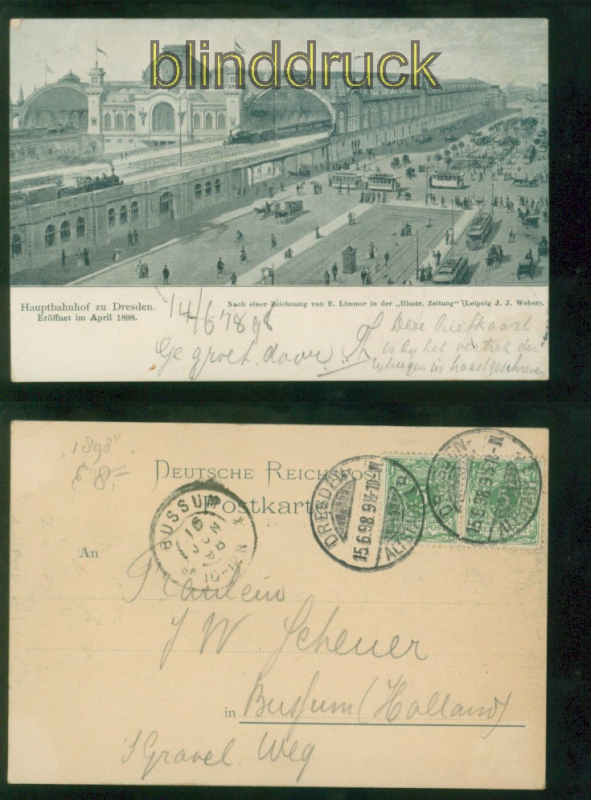 blinddruck
Hauptbahnhof zu Dresden.
Eröffnet im April 1898.
Nach einer Zeichnung von E. Limmer in der „Illustr. Zeitung" (Leipzig J. J. Weber).
14/6 1898
Gegroet door
Deze briefkaart
is bij het vertrek der
in haast geschreven
1898
8.-
DEUTSCHE REICHSPOST
Postkarte
BUSSUM
16 JUN 98
DRESDEN
15.6.98.9
ALTSTADT
15.6.98.9
An
Fräulein
J W Scheuer
in Bussum (Holland)
s'Gravel. Weg